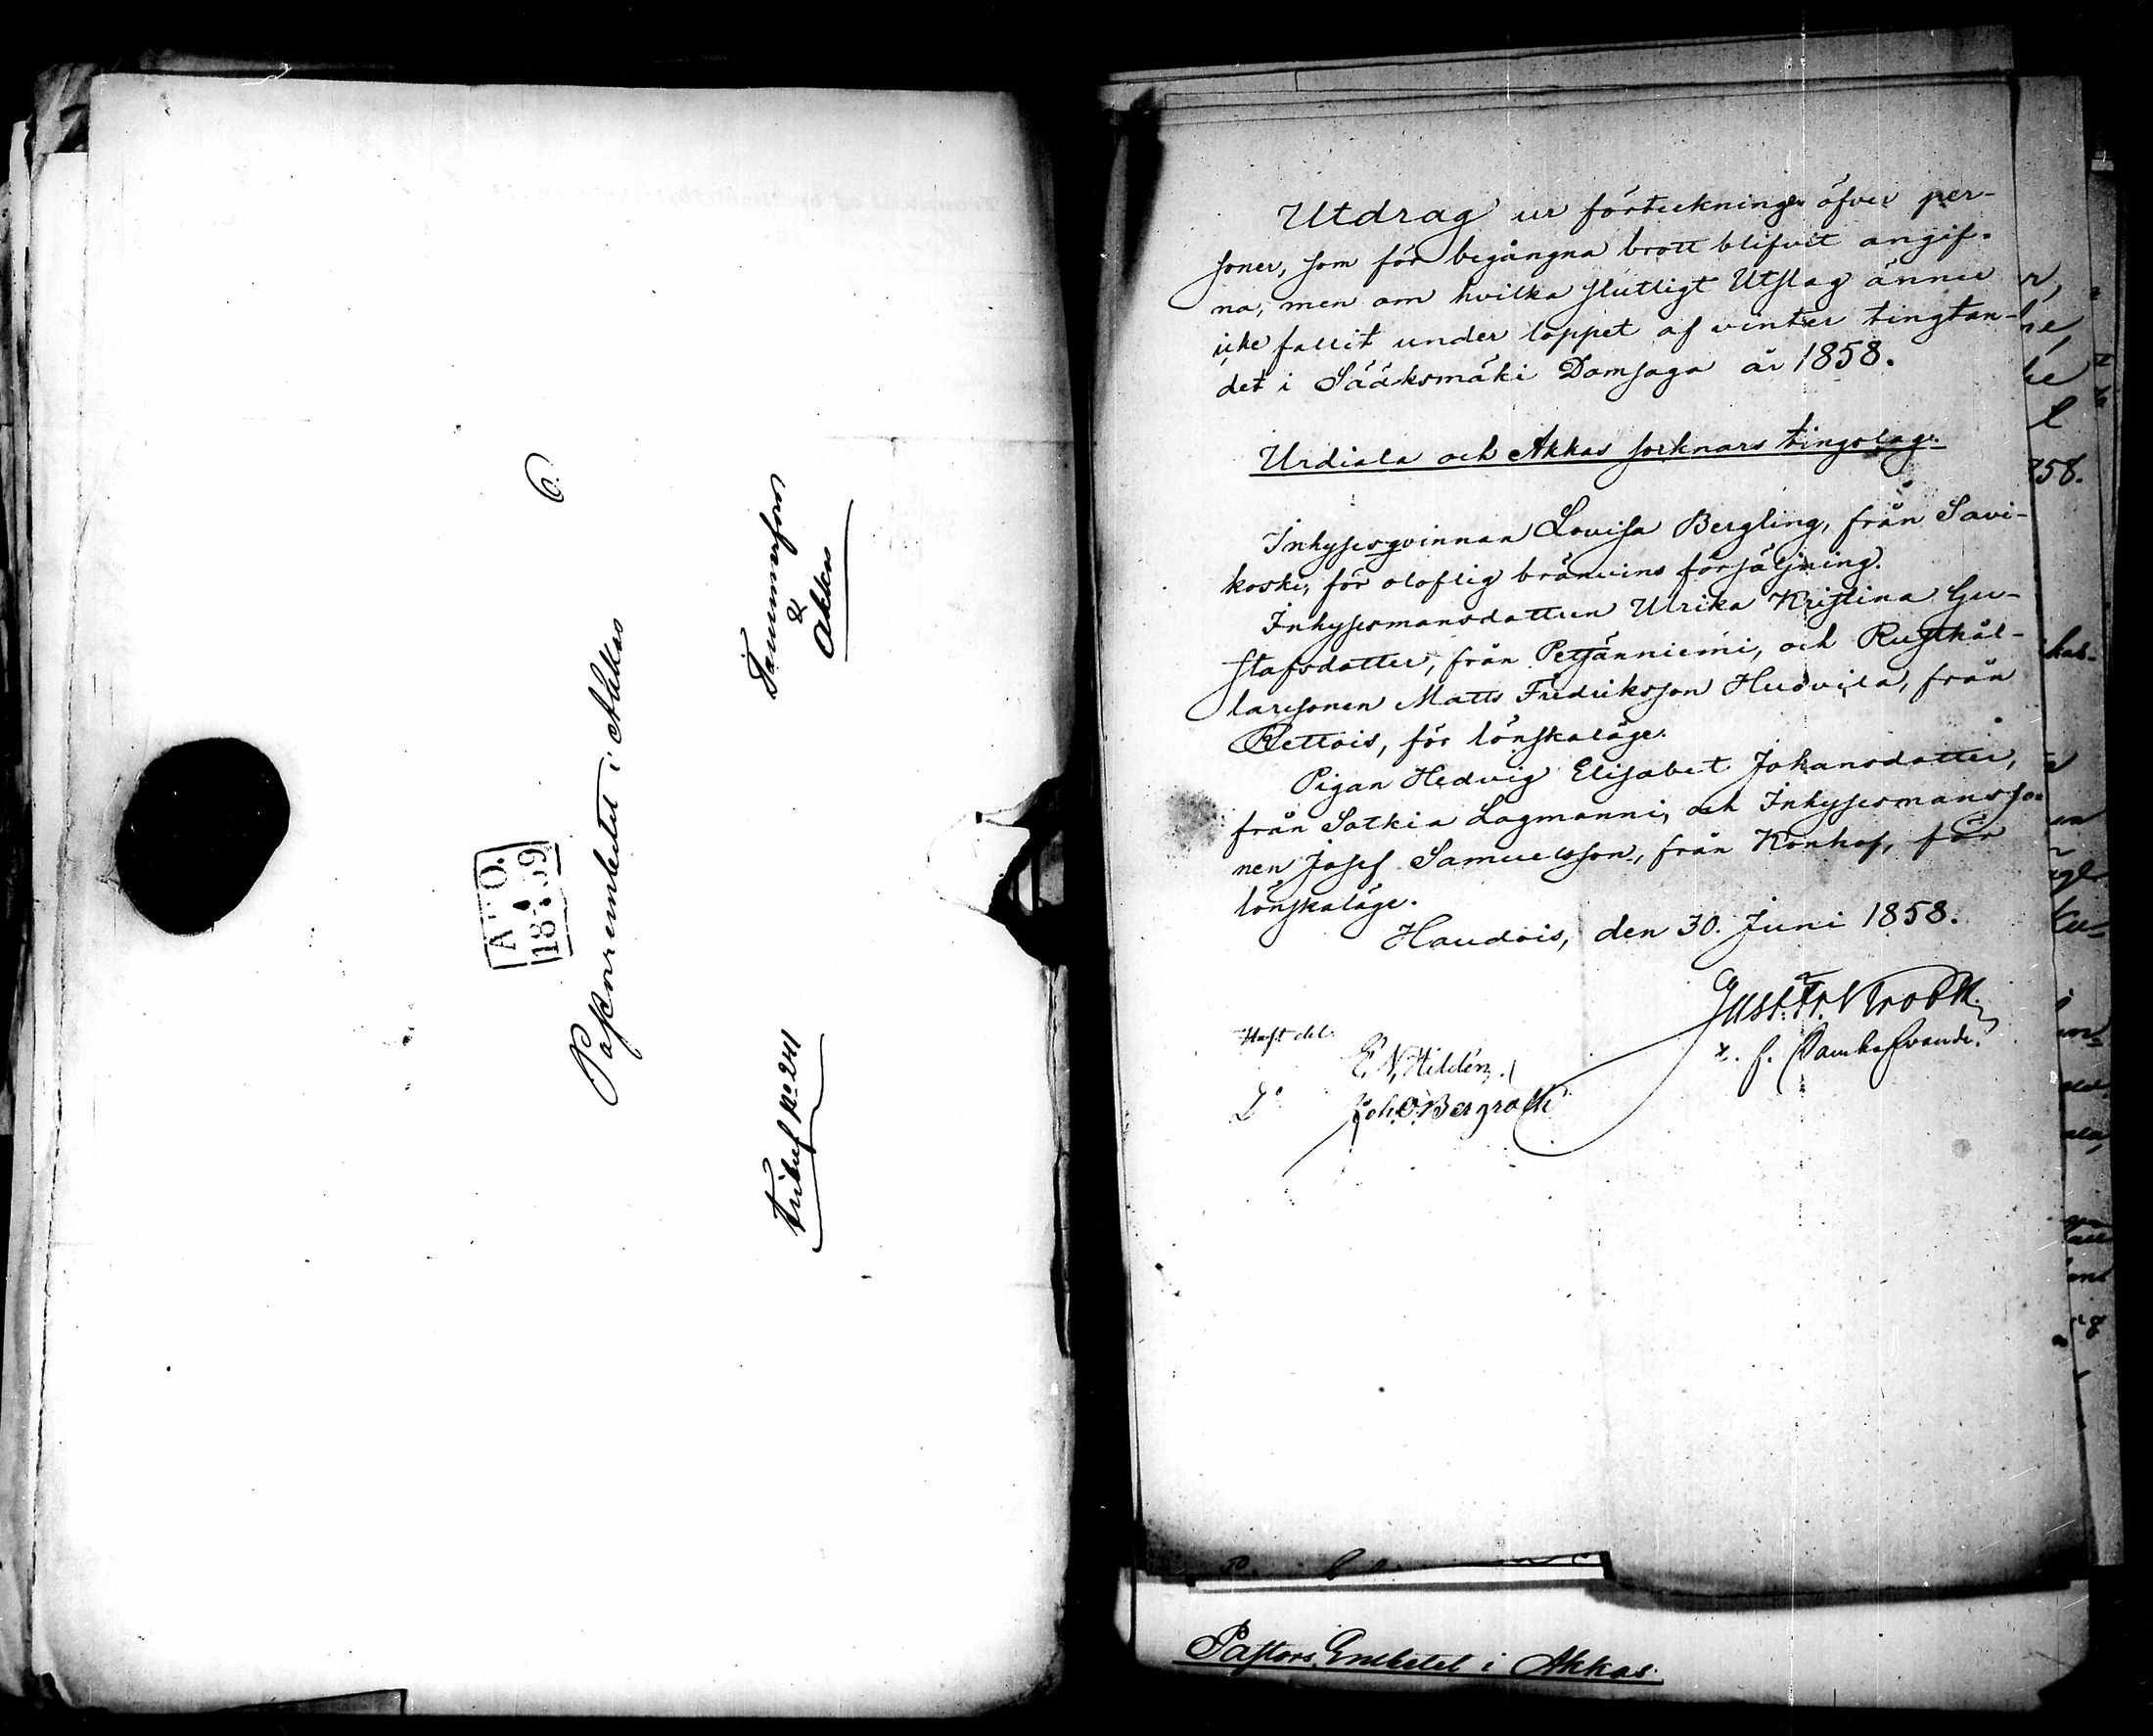 6.
Pastorsembetet i Akkas
ABO.
1859
Tammerfors
&
Akkas
Fribref No 241
Utdrag ur förteckningen öfver per-
soner, som för begångna brott blifvit angif-
na, men om hvilka slutligt Utslag ännu
icke fallit under loppet af vinter tingtan-
det i Sääksmäki Domsaga år 1858.
Urdiala och Akkas socknars tingslag.
Inhysesqvinnan Lovisa Bergling, från Savi-
koski, för oloflig bränvins försäljning.
Inhysesmansdottren Ulrika Kristina Gu-
stafsdotter, från Petsänniemi, och Rusthål-
laresonen Matts Fredriksson Huovila, från
Rettois, för lönskaläge.
Pigan Hedvig Elisabet Johansdotter,
från Sotkia Lagmanni, och Inhysesmansso-
nen Josef Samuelsson, från Könhof, för
lönskaläge.
Haudois, den 30. Juni 1858.
Gust. Fr.
E. N. Hildén.
Joh. O. Bergroth
Pastors Embetet i Akkas.